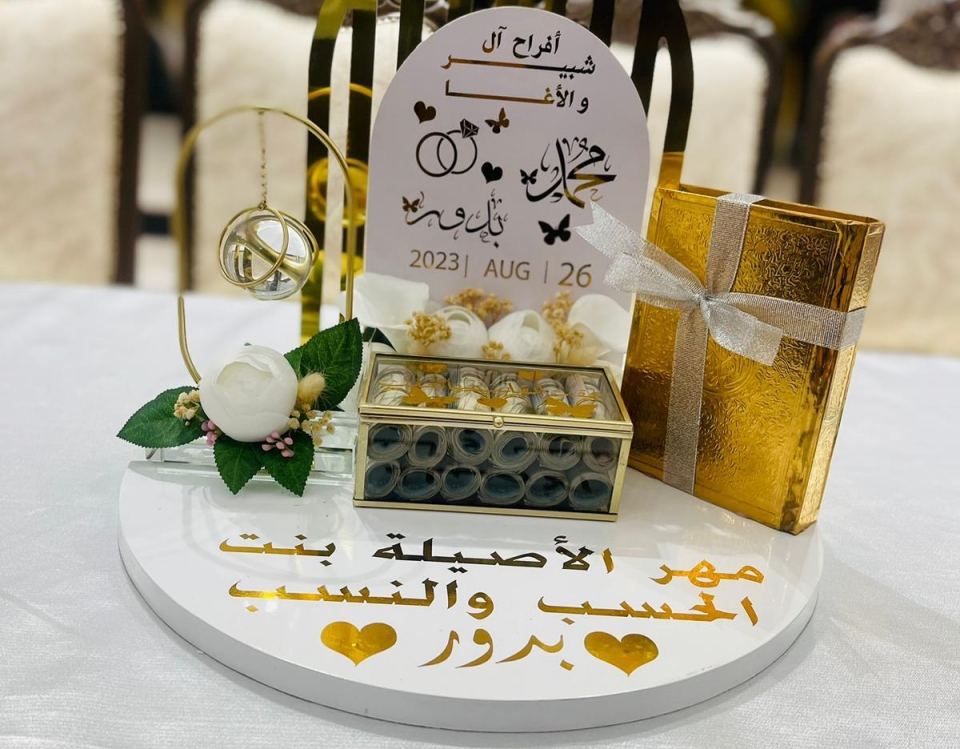 أفراح آل
شبير
والأغا
محمد
بدور
2023 | AUG | 26
مهر الأصيلة بنت
الحسب والنسب
بدور